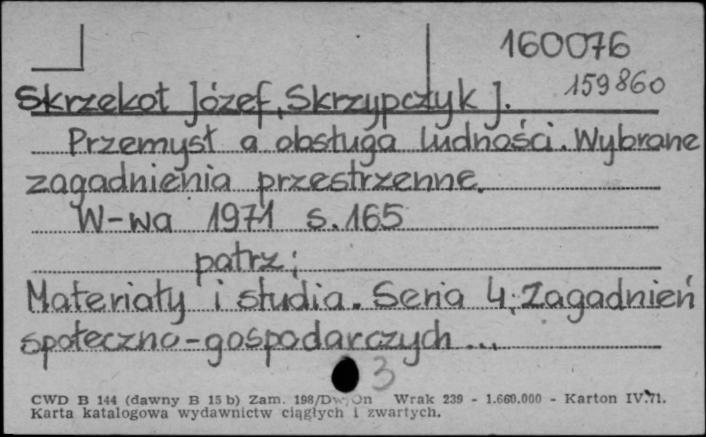 160076
159860
Skrzekot Józef, Skrzypczyk J.
Przemysł a obsługa ludności. Wybrane
zagadnienia przestrzenne.
W-wa 1971 s. 165
patrz:
Materiały i studia. Seria 4; Zagadnień
społeczno-gospodarczych ...
3
CWD B 144 (dawny B 15 b) Zam. 198/Dw/On Wrak 239 - 1.660.000 - Karton IV.71.
Karta katalogowa wydawnictw ciągłych i zwartych.